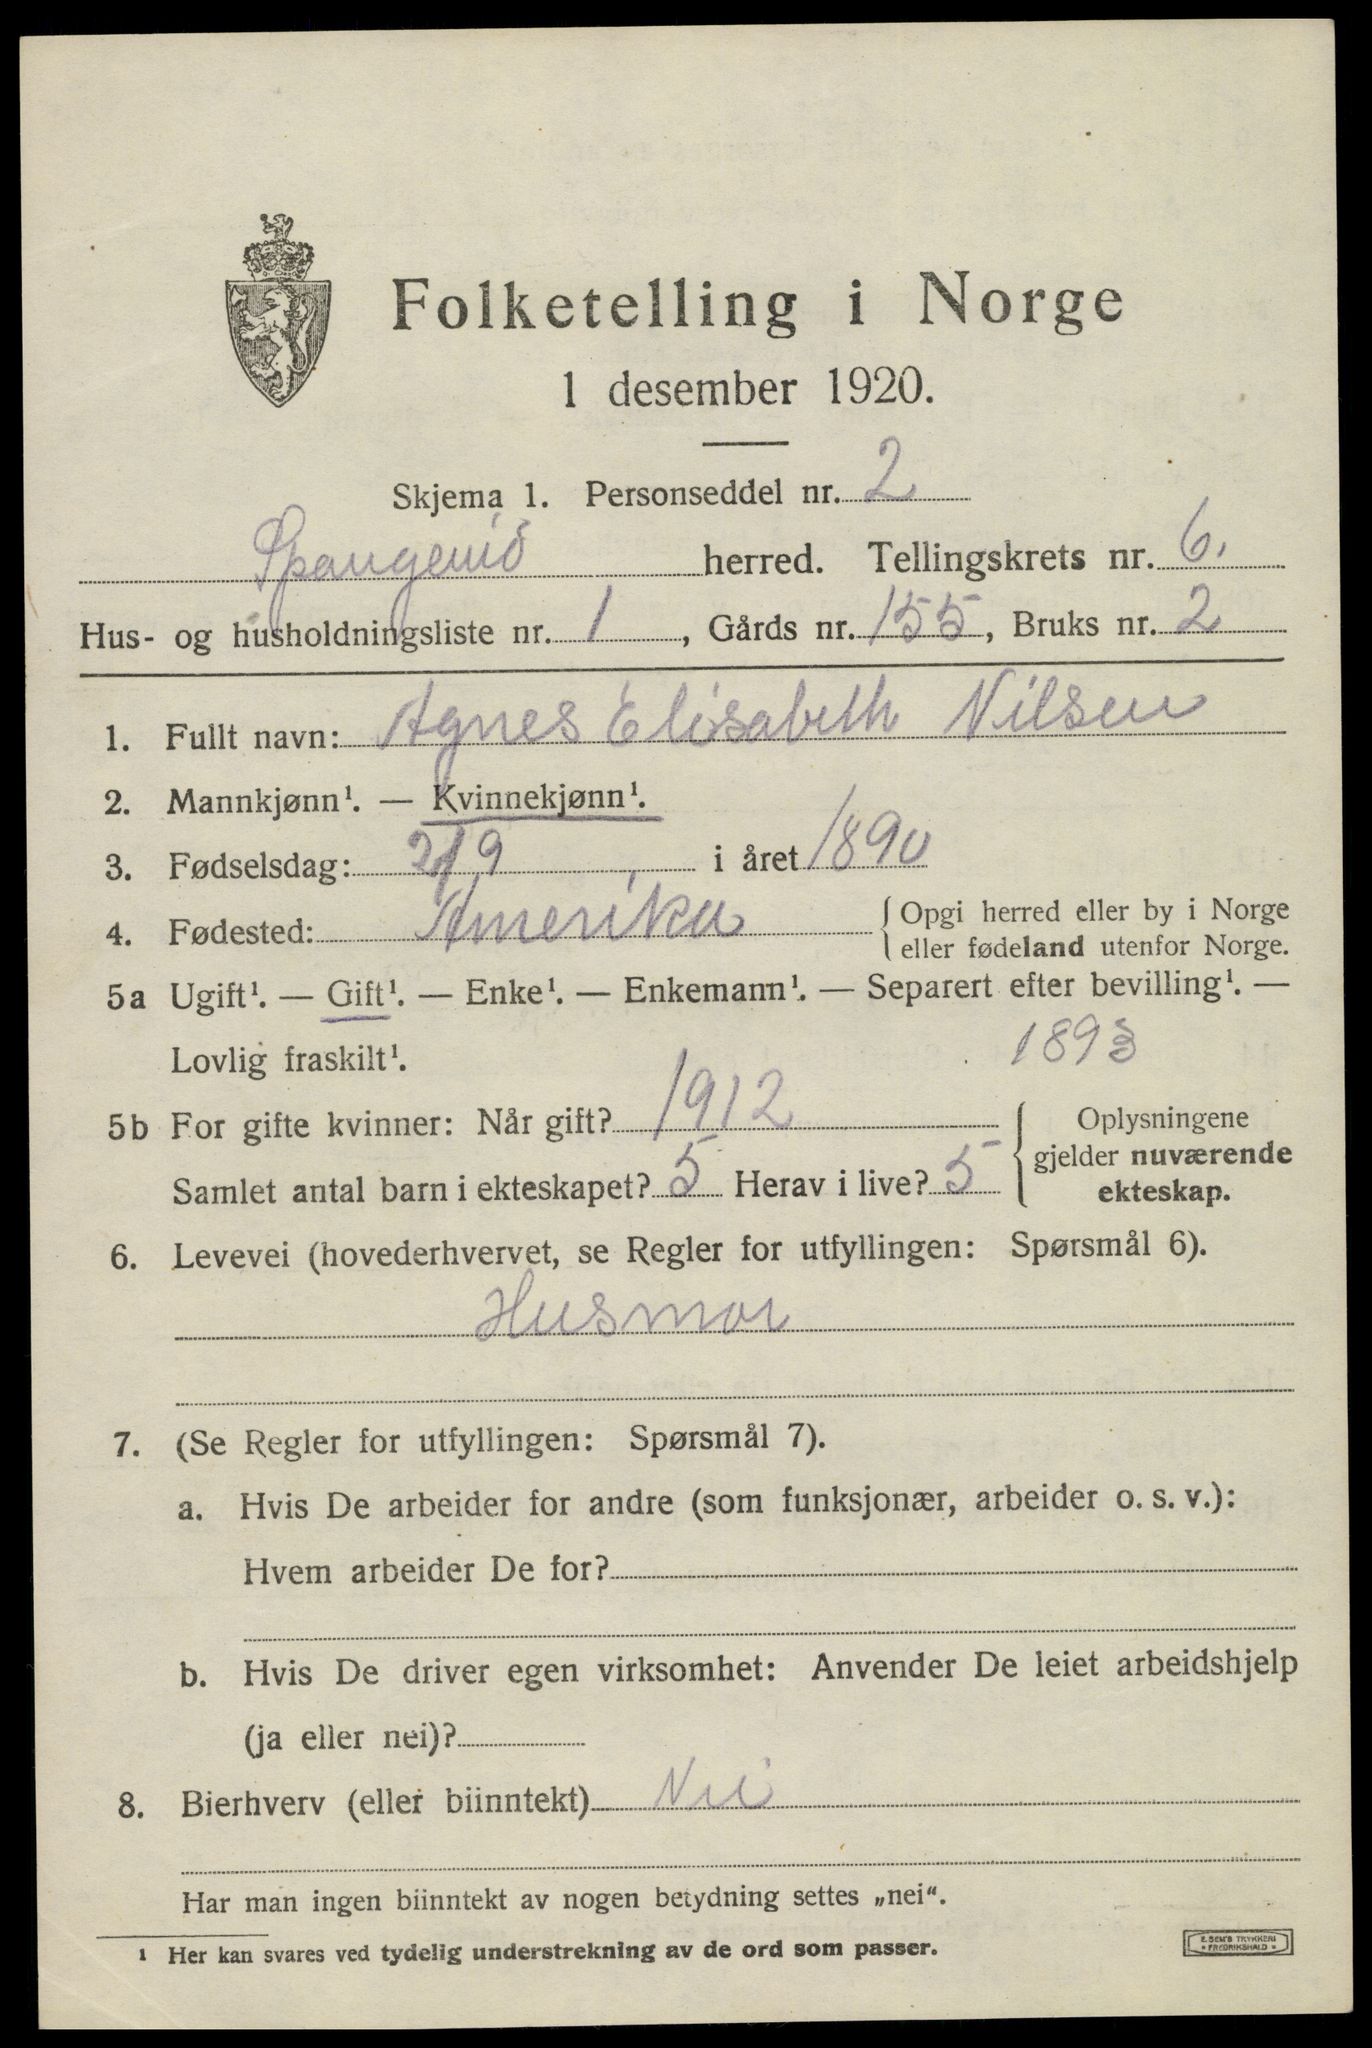 Folketelling i Norge
1 desember 1920.
Skjema 1. Personseddel nr. 2
herred. Tellingskrets nr. 6.
Hus- og husholdningsliste nr. 1, Gårds nr. 155, Bruks nr. 2
1. Fullt navn: Agnes Elisabeth Nilsen
2. Mannkjønn¹. — Kvinnekjønn¹.
3. Fødselsdag: 2/9 i året 1890
4. Fødested: Amerika { Opgi herred eller by i Norge
eller fødeland utenfor Norge.
5a Ugift¹. — Gift¹. — Enke¹. — Enkemann¹. — Separert efter bevilling¹. —
Lovlig fraskilt¹. 1893
5b For gifte kvinner: Når gift? 1912
Samlet antal barn i ekteskapet? 5 Herav i live? 5
{ Oplysningene
gjelder nuværende
ekteskap.
6. Levevei (hovederhvervet, se Regler for utfyllingen: Spørsmål 6).
Husmor
7. (Se Regler for utfyllingen: Spørsmål 7).
a. Hvis De arbeider for andre (som funksjonær, arbeider o. s. v.):
Hvem arbeider De for?
b. Hvis De driver egen virksomhet: Anvender De leiet arbeidshjelp
(ja eller nei)?
8. Bierhverv (eller biinntekt) Nei
Har man ingen biinntekt av nogen betydning settes „nei“.
¹ Her kan svares ved tydelig understrekning av de ord som passer.
E. SEM'S TRYKKERI
FREDRIKSHALD